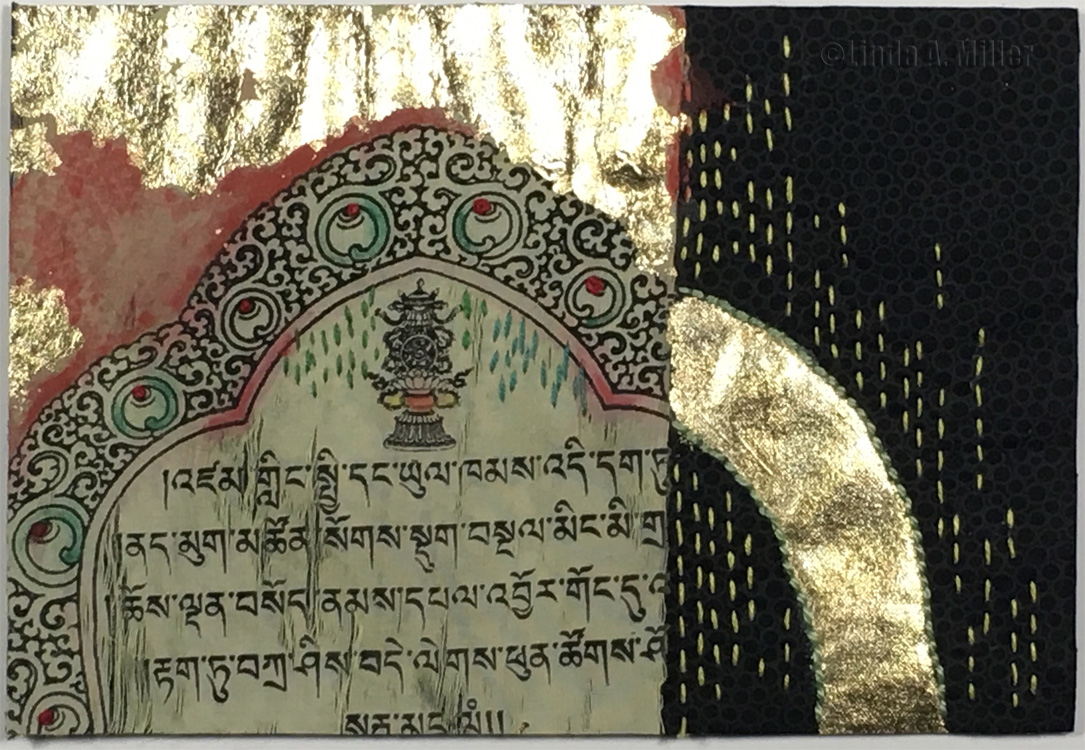 ©Linda A. Miller
།འཛམ་གླིང་སྤྱི་དང་ཡུལ་ཁམས་འདི་དག་ཏུ
ནད་མུག་མཚོན་སོགས་སྡུག་བསྔལ་མིང་མི་གྲ
ཆོས་ལྡན་བསོད་ནམས་དཔལ་འབྱོར་གོང་དུ་འ
།རྟག་ཏུ་བཀྲ་ཤིས་བདེ་ལེགས་ཕུན་ཚོགས་ཤོ